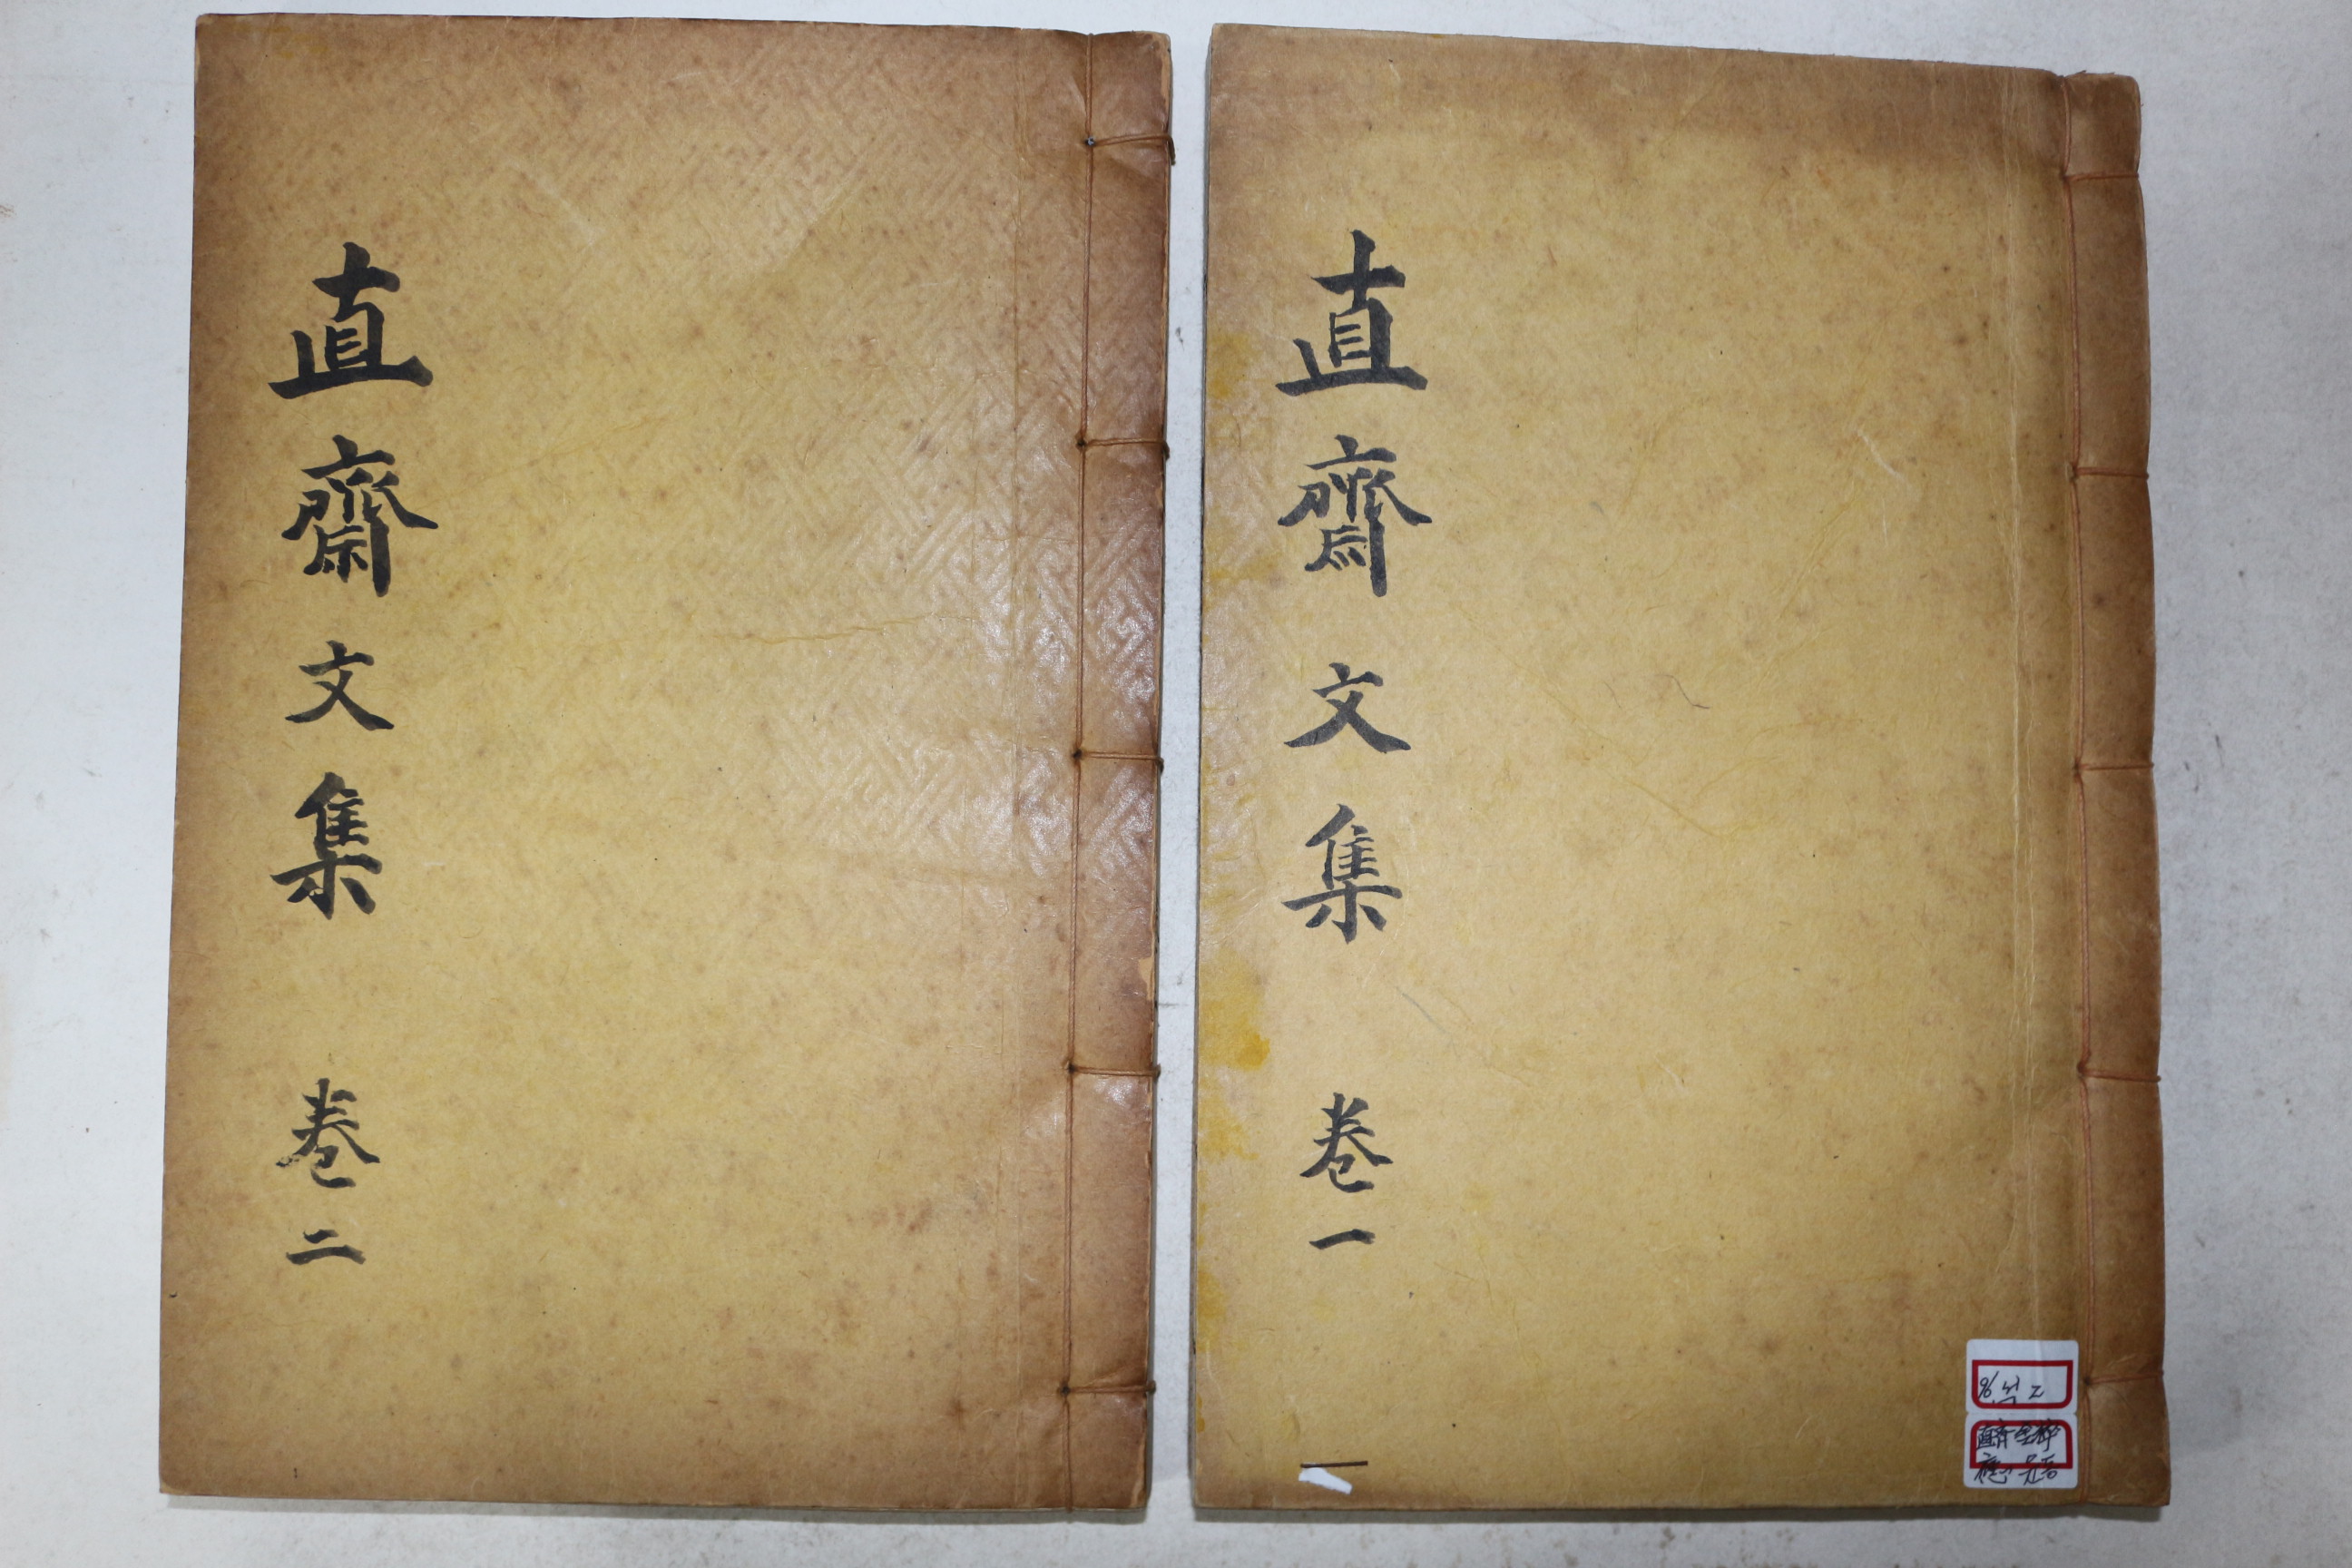 直齋文集 卷一
直齋文集 卷二